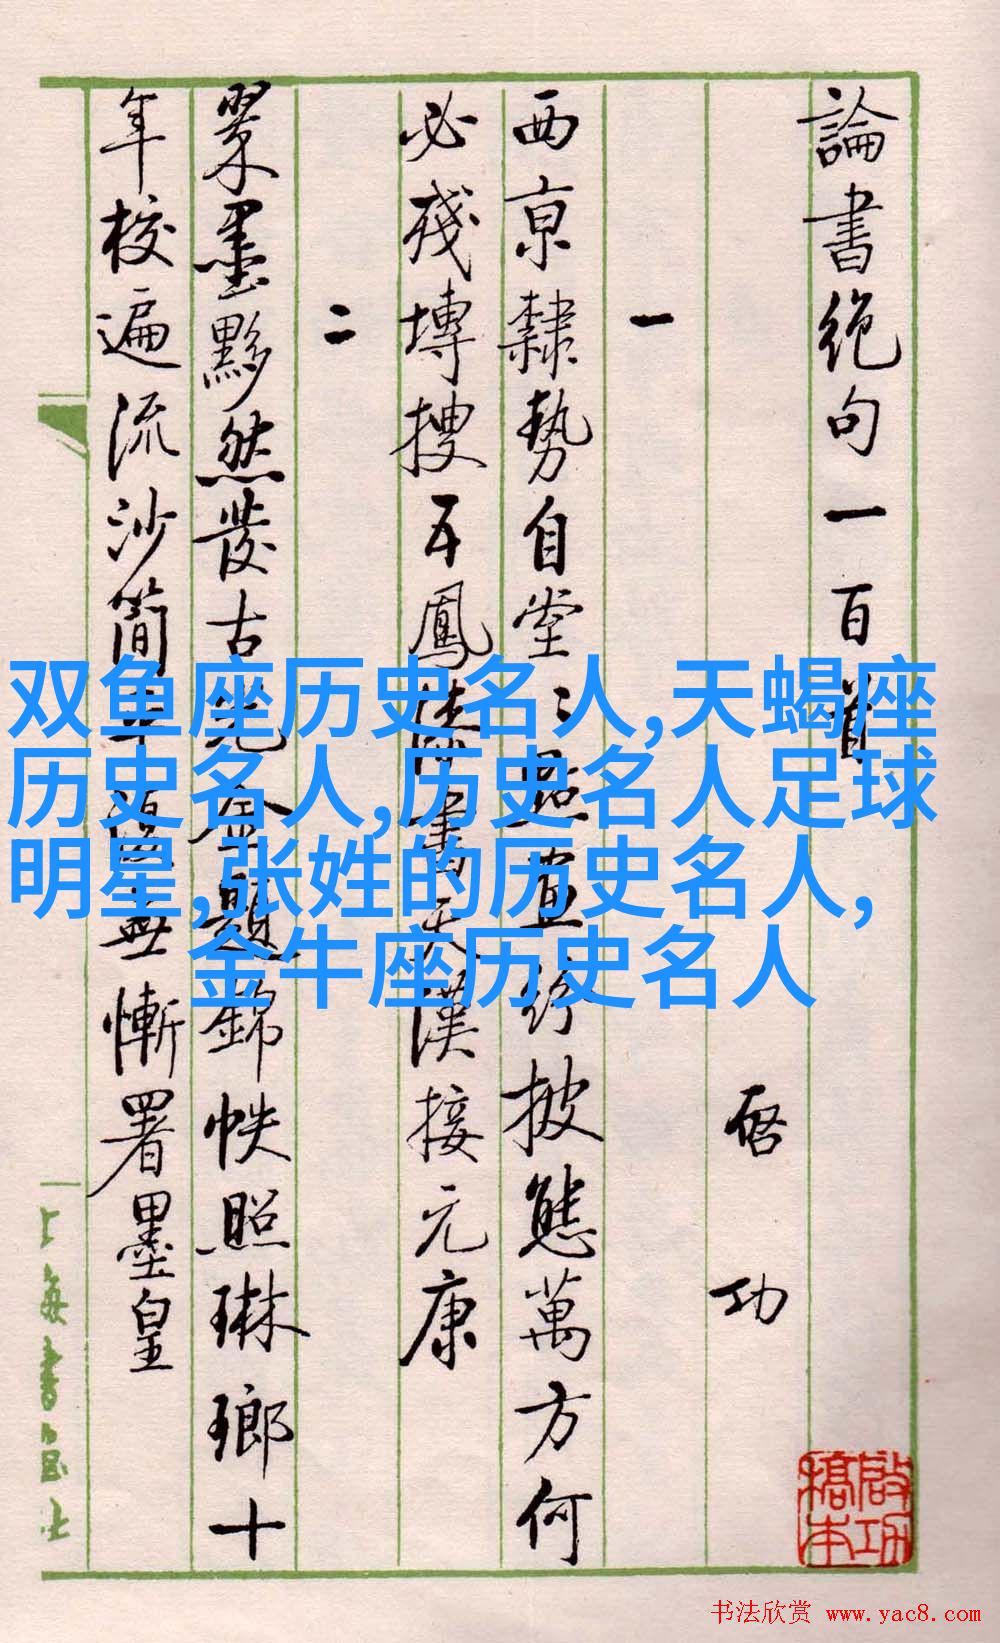 論書絕句一百首
启功
一
西京隸勢自堂〻點畫紛披態萬方何
必殘塼搜五鳳漆書天漢接元康
二
翠墨黟然發古光金題錦帙照琳瑯十
年校遍流沙簡平復無慚署墨皇
上海書画社
啟功
稿本
双鱼座历史名人,天蝎座
历史名人,历史名人足球
明星,张姓的历史名人,
金牛座历史名人
书法欣赏 www.yac8.com